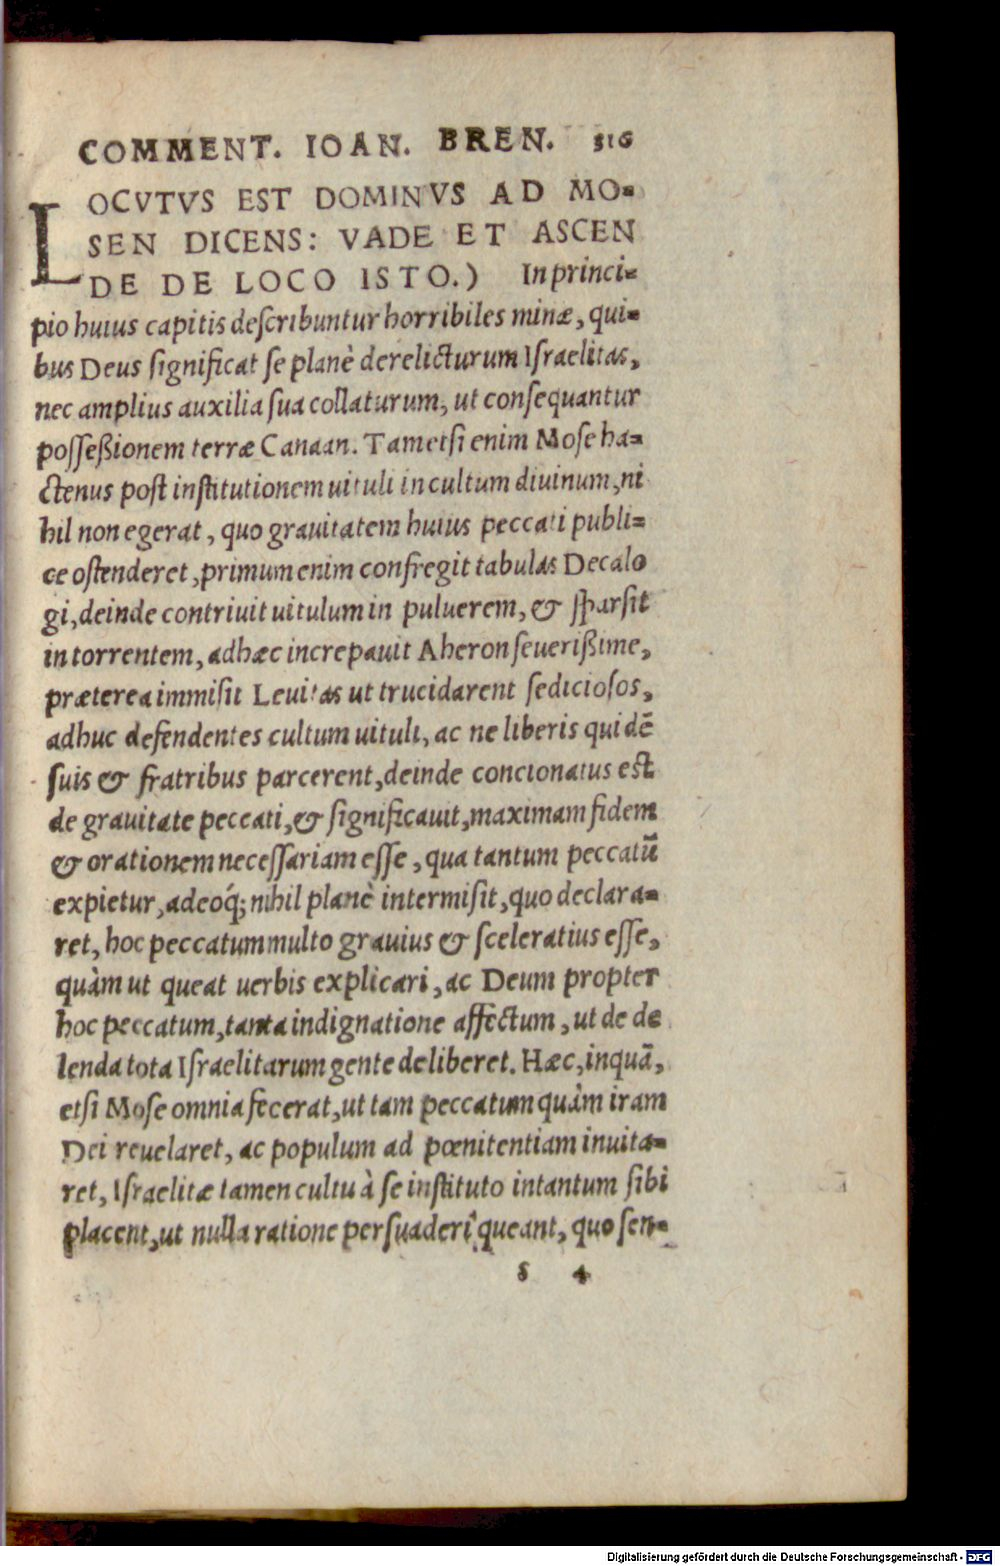 COMMENT. IOAN. BREN. 316
LOCVTVS EST DOMINVS AD MO-
SEN DICENS: VADE ET ASCEN
DE DE LOCO ISTO.) In princi-
pio huius capitis describuntur horribiles minæ, qui-
bus Deus significat se planè derelicturum Israelitas,
nec amplius auxilia sua collaturum, ut consequantur
posseßionem terræ Canaan. Tametsi enim Mose ha-
ctenus post institutionem uituli in cultum diuinum, ni
hil non egerat, quo grauitatem huius peccati publi-
ce ostenderet, primum enim confregit tabulas Decalo
gi, deinde contriuit uitulum in puluerem, & sparsit
in torrentem, adhæc increpauit Aheron seuerißime,
præterea immisit Leuitas ut trucidarent sediciosos,
adhuc defendentes cultum uituli, ac ne liberis quidē
suis & fratribus parcerent, deinde concionatus est
de grauitate peccati, & significauit, maximam fidem
& orationem necessariam esse, qua tantum peccatū
expietur, adeoq́; nihil planè intermisit, quo declara-
ret, hoc peccatum multo grauius & sceleratius esse,
quàm ut queat uerbis explicari, ac Deum propter
hoc peccatum, tanta indignatione affectum, ut de de
lenda tota Israelitarum gente deliberet. Hæc, inquā,
etsi Mose omnia fecerat, ut tam peccatum quàm iram
Dei reuelaret, ac populum ad pœnitentiam inuita-
ret, Israelitæ tamen cultu à se instituto intantum sibi
placent, ut nulla ratione persuaderi queant, quo sen-
s 4
Digitalisierung gefördert durch die Deutsche Forschungsgemeinschaft - DFG